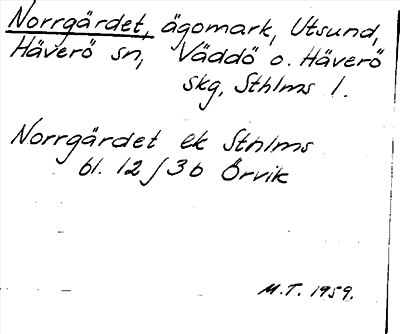 Norrgärdet, ägomark, Utsund,
Häverö sn, Väddö o. Häverö
skg, Sthlms l.
Norrgärdet ek Sthlms
bl. 12 J 3b Örvik
M.T. 1959.